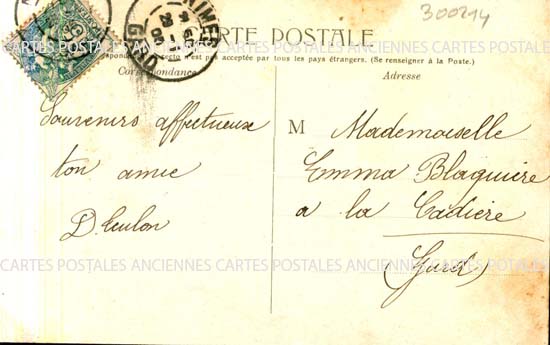 300214
CARTE POSTALE
NIMES
GARD
CARTES POSTALES ANCIENNES CARTES POSTALES ANCIENNES CARTES POSTALES
recto n'est pas acceptée par tous les pays étrangers. (Se renseigner à la Poste.)
Correspondance
Adresse
Souvenirs affectueux
ton amie
D. Teulon
M Mademoiselle
Emma Blaquière
a la Cadière
(Gard)
CARTES POSTALES ANCIENNES CARTES POSTALES ANCIENNES CARTES POSTALES